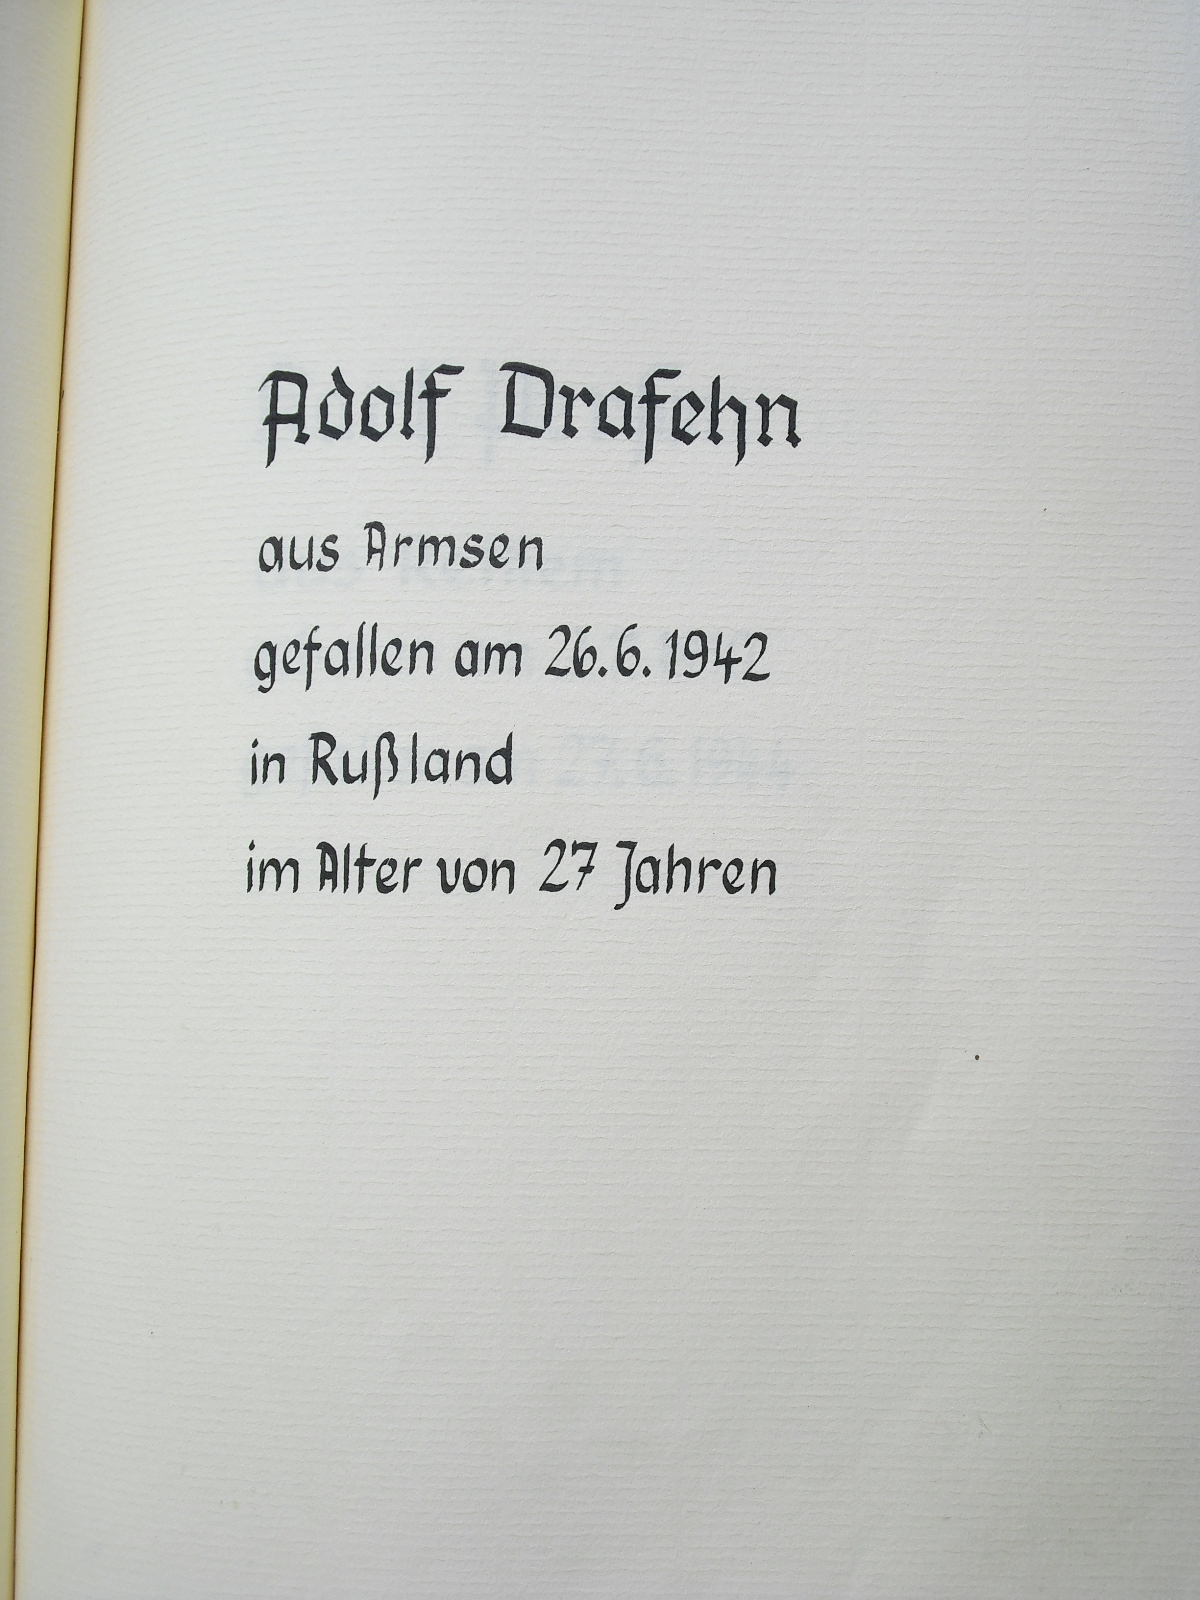 Adolf Drafehn
aus Armsen
gefallen am 26.6.1942
in Rußland
im Alter von 27 Jahren